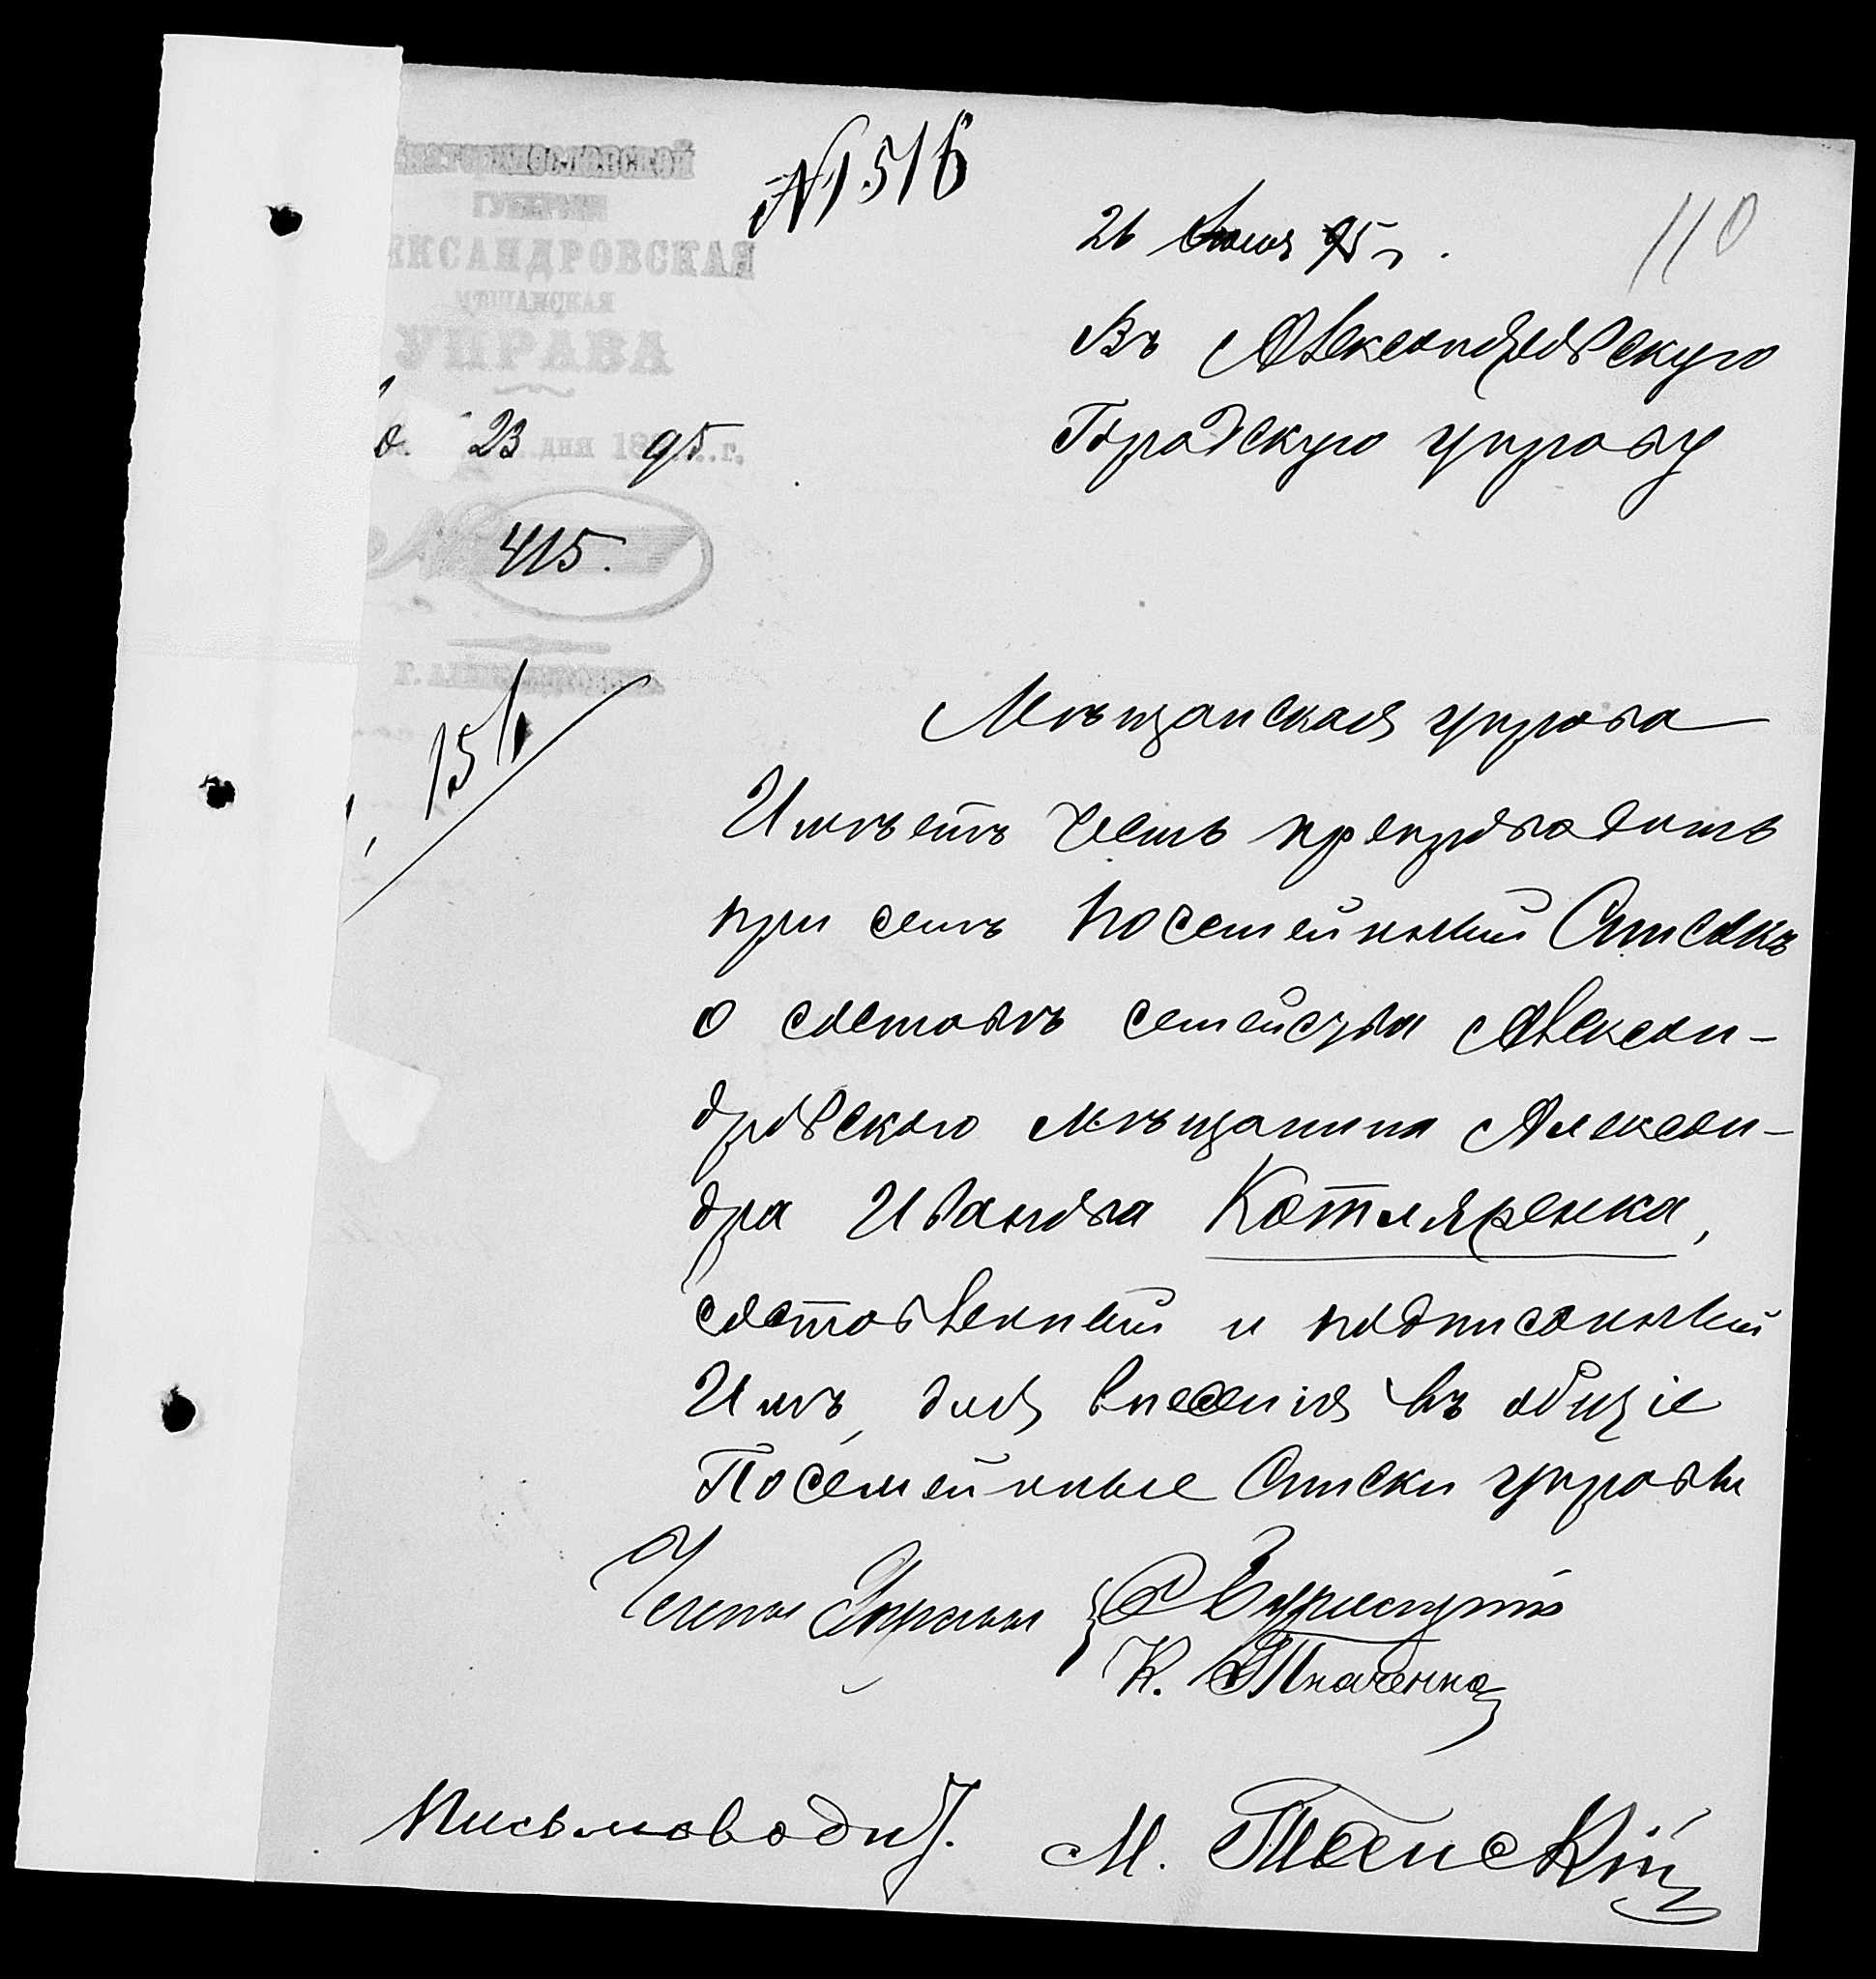 № 1516
26 Июля 95 г.
110
Екатеринославской
ГУБЕРНІИ
АЛЕКСАНДРОВСКАЯ
МѢЩАНСКАЯ
УПРАВА
23 дня 1895 г.
№ 415.
Г. АЛЕКСАНДРОВСКЪ
Въ Александровскую
Городскую управу
Мѣщанская управа
Имѣетъ честь препроводить
при семъ посемейный Списокъ
о составѣ семейства Алексан-
дровского мѣщанина Алексан-
дра Иванова Котляренка,
составленный и подписанный
Имъ, для внесенія въ общіе
Посемейные Списки управы
Члены Управы
К. Ткаченко
Письмоводит.
М.